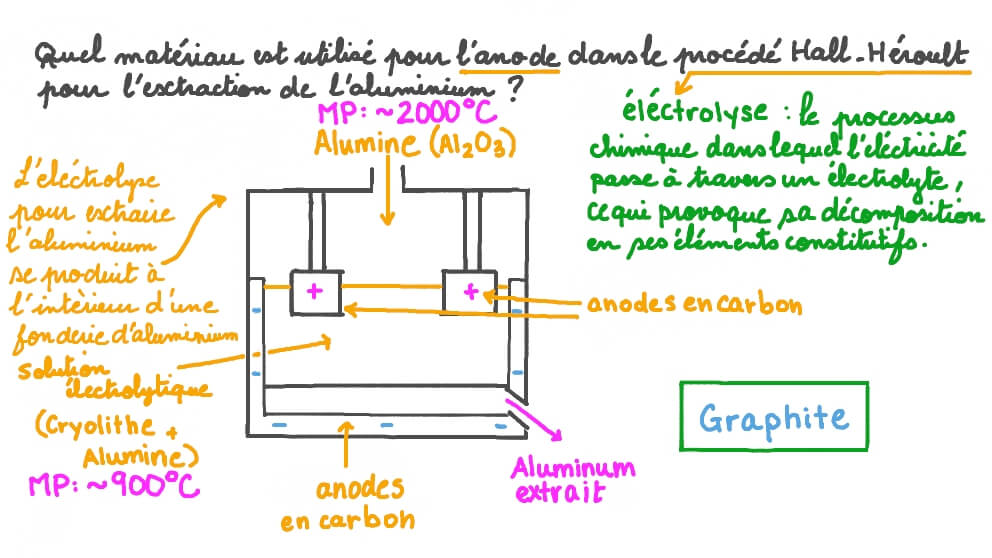 Quel matériau est utilisé pour l'anode dans le procédé Hall-Héroult
pour l'extraction de l'aluminium ?
MP: ~2000°C
Alumine (Al₂O₃)
éléctrolyse : le processus
chimique dans lequel l'éléctricité
passe à travers un électrolyte,
ce qui provoque sa décomposition
en ses éléments constitutifs.
L'éléctrolyse
pour extraire
l'aluminium
se produit à
l'intérieur d'une
fonderie d'aluminium
solution
électrolytique
(Cryolithe +
Alumine)
MP: ~900°C
+
+
anodes en carbon
anodes
en carbon
Aluminum
extrait
Graphite